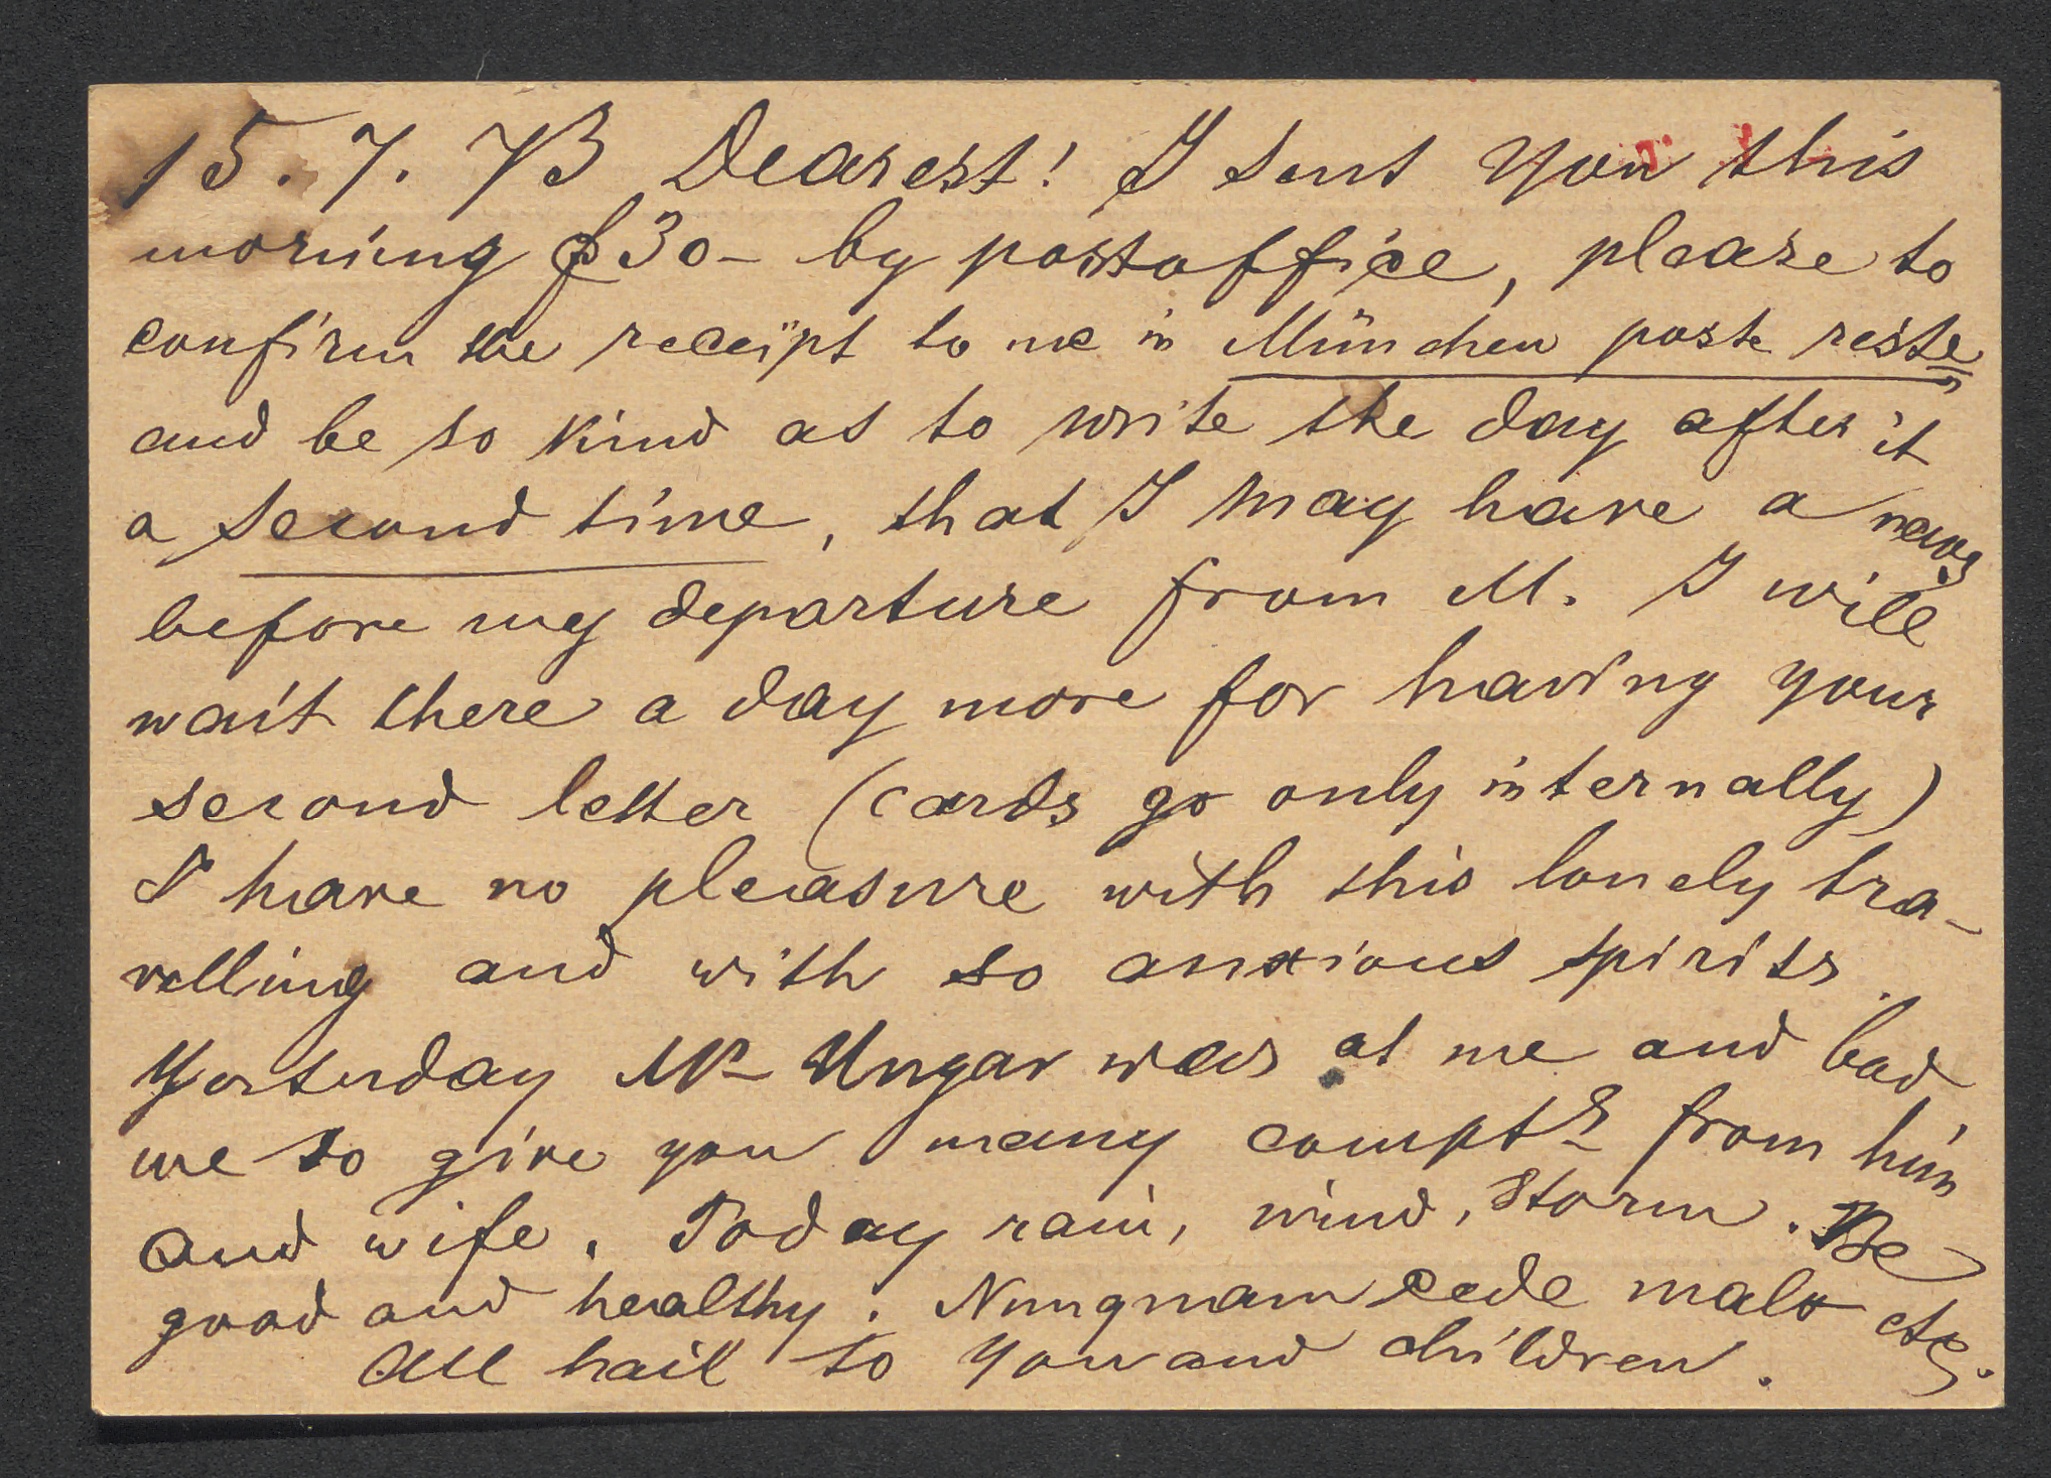 15. 7. 73 Dearest! I sent you this
morning f 30 – by postoffice, please to
confirm the receipt to me in München poste reste
and be so kind as to write the day after it
a second time, that I may have a news
before my departure from M. I will
wait there a day more for having your
second letter (cards go only internally)
I have no pleasure with this lonely tra-
velling and with so anxious spirits.
Yesterday Mr Ungar was at me and bad
me to give you many compts from him
and wife. Today rain, wind, storm. Be
good and healthy. Nunquam cede malo etc.
All hail to you and children.